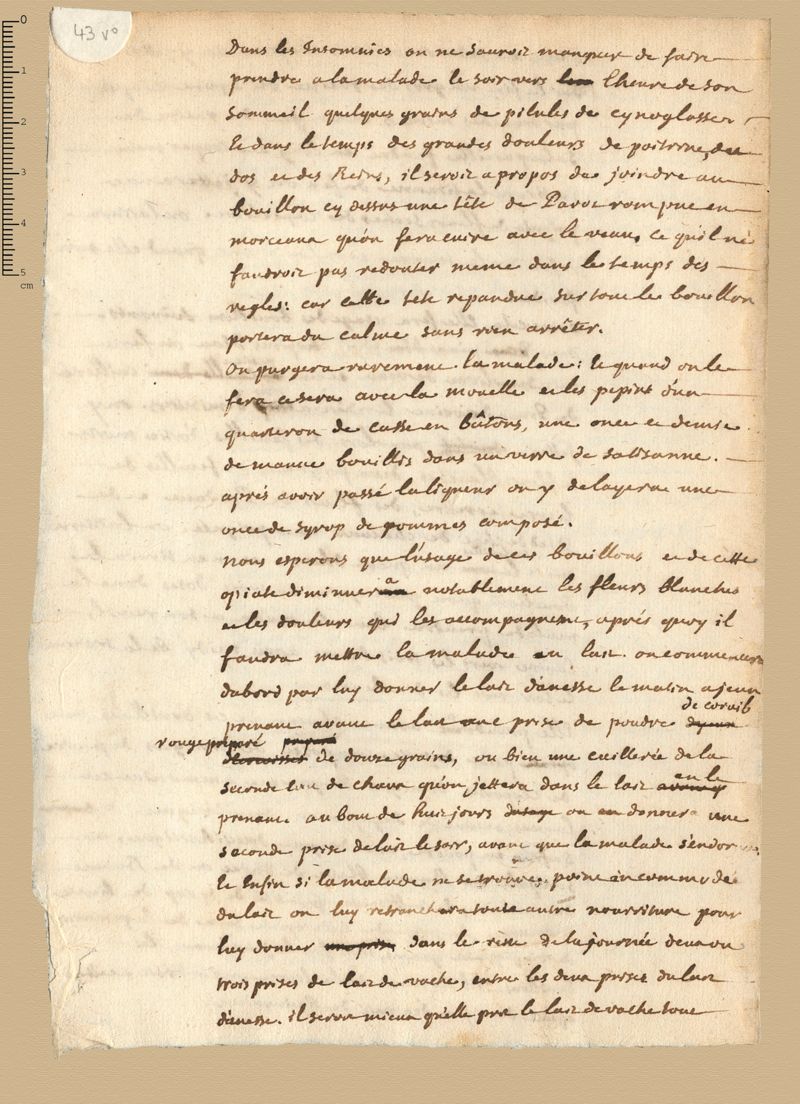 43 v°
Dans les Insomnies on ne sauroit manquer de faire
prendre a la malade le soir vers l'heure de son
sommeil quelques grains de pilules de cynoglosse.
Et dans le temps des grandes douleurs de poitrine, du
dos et des Reins, il seroit a propos de joindre au
bouillon cy dessus une tête de Pavot rompue en
morceaux qu'on fera cuire avec le veau, ce qu'il ne
faudroit pas redouter meme dans le temps des
regles: car cette tete repandue sur tout le bouillon
portera du calme sans rien arrêter.
On purgera rarement la malade: et quand on le
fera ce sera avec la mouelle et les pepins d'un
quarteron de casse en bâtons, une once et demie
de manne bouillis dans un verre de sa tisanne.
aprés avoir passé la liqueur on y delayera une
once de syrop de pommes composé.
Nous esperons que l'usage de ces bouillons et de cette
opiate diminuera notablement les fleurs blanches
et les douleurs qui les accompagnent, aprés quoy il
faudra mettre la malade au lait. on commencera
dabord par luy donner le lait d'anesse le matin a jeun
prenant avant le lait une prise de poudre de corail
rouge preparé de douze grains, ou bien une cuillerée de la
seconde eau de chaux qu'on jettera dans le lait en le
prenant. au bout de huit jours on en donnera une
seconde prise de lait le soir, avant que la malade s'endorme.
Et Enfin si la malade ne se trouve point incommodée
du lait on luy retranchera toute autre nourriture pour
luy donner dans le reste de la journée deux ou
trois prises de lait de vache, entre les deux prises du lait
d'anesse. il seroit mieux qu'elle prit le lait de vache tout
0
1
2
3
4
5
cm